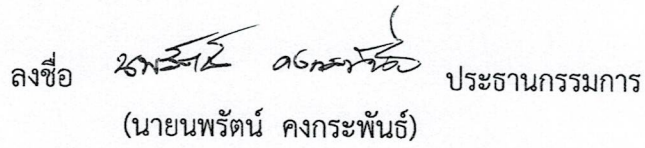 ลงชื่อ นพรัตน์ คงกระพันธ์ ประธานกรรมการ
(นายนพรัตน์ คงกระพันธ์)